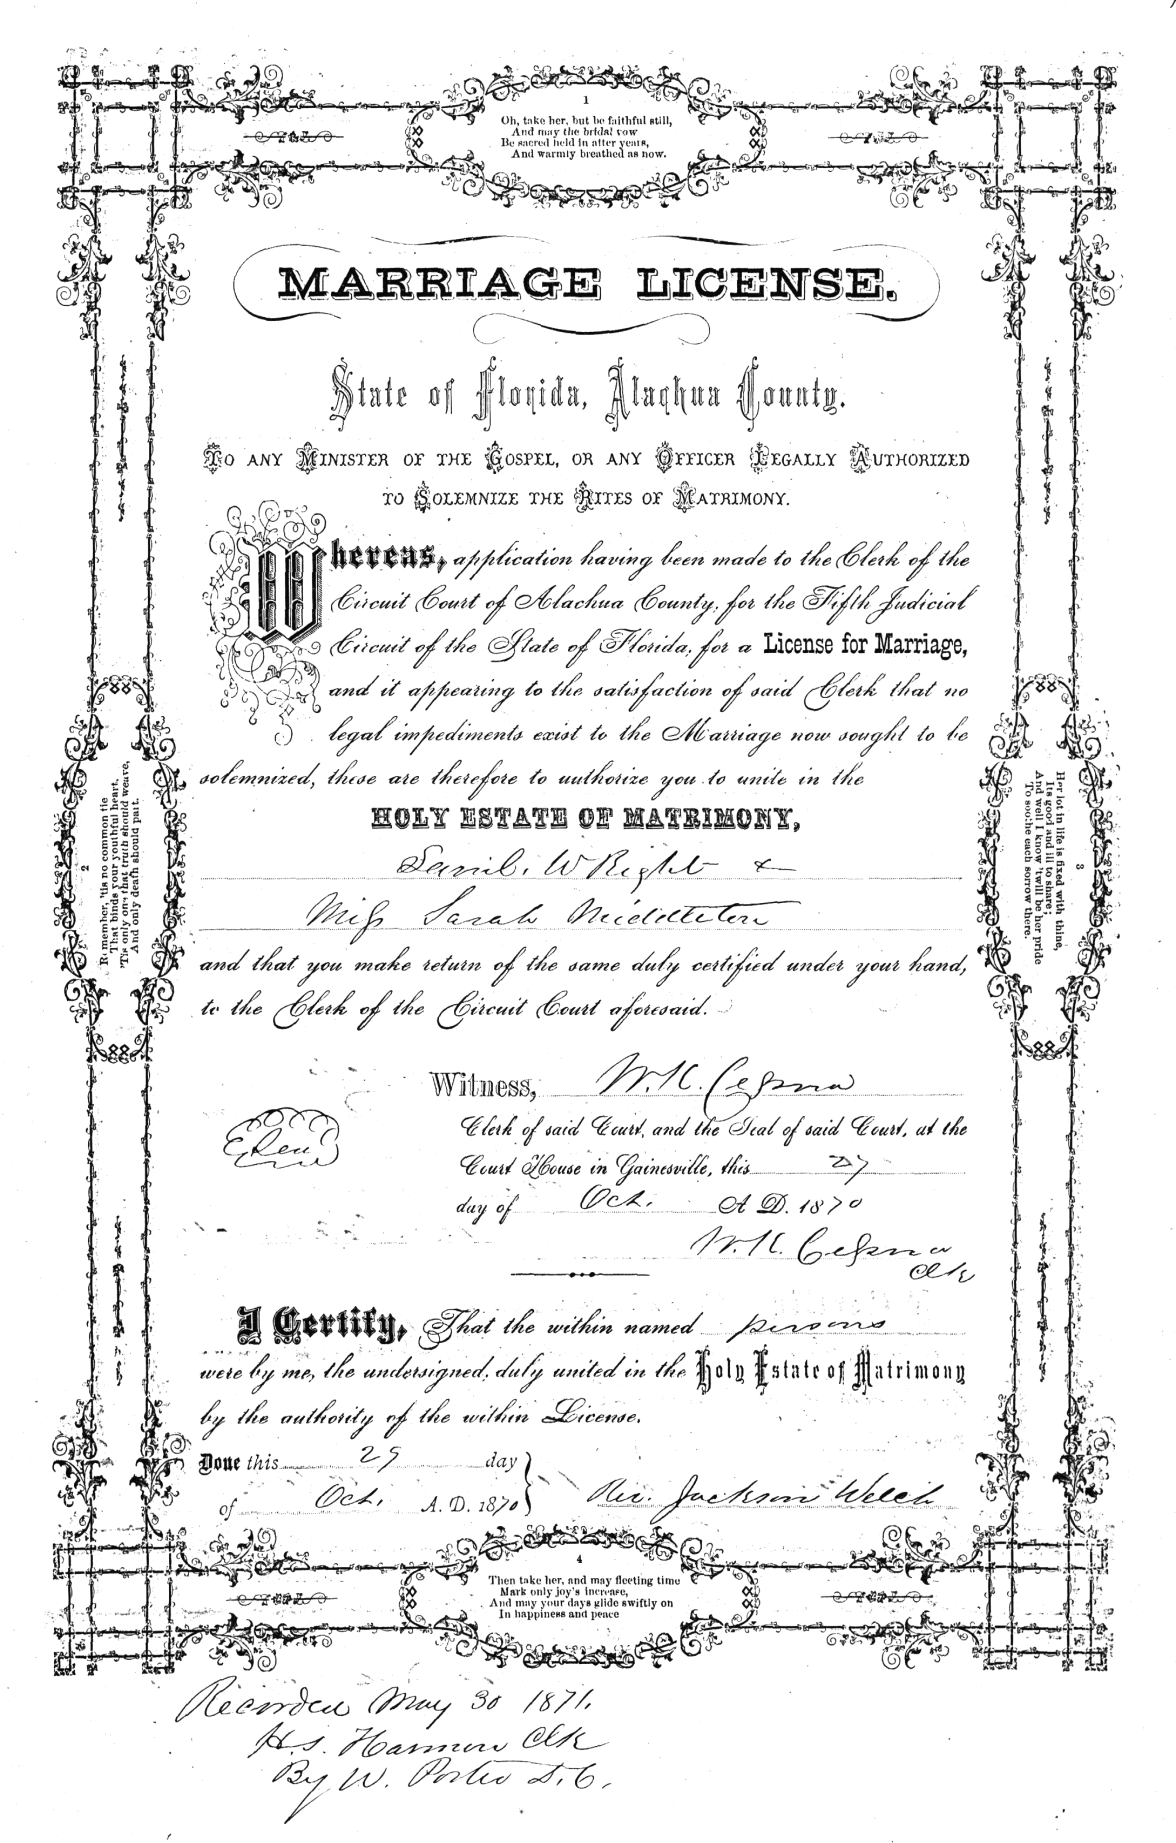 1
Oh, take her, but be faithful still,
And may the bridal vow
Be sacred held in after years,
And warmly breathed as now.
MARRIAGE LICENSE.
State of Florida, Alachua County.
TO ANY MINISTER OF THE GOSPEL, OR ANY OFFICER LEGALLY AUTHORIZED
TO SOLEMNIZE THE RITES OF MATRIMONY.
Whereas, application having been made to the Clerk of the
Circuit Court of Alachua County, for the Fifth Judicial
Circuit of the State of Florida, for a License for Marriage,
and it appearing to the satisfaction of said Clerk that no
legal impediments exist to the Marriage now sought to be
solemnized, these are therefore to authorize you to unite in the
HOLY ESTATE OF MATRIMONY,
Saml. Wright &
Miss Sarah Middleton
and that you make return of the same duly certified under your hand,
to the Clerk of the Circuit Court aforesaid.
2
Remember, 'tis no common tie
That binds your youthful heart,
'Tis only one that truth should weave,
And only death should part.
3
Her lot in life is fixed with thine,
Its good and ill to share;
And well I know 'twill be her pride
To soothe each sorrow there.
Witness, W. K. Cessna
Clerk of said Court, and the Seal of said Court, at the
Court House in Gainesville, this 27
day of Oct. A D. 1870
W. K. Cessna
Clk
I Certify, That the within named persons
were by me, the undersigned, duly united in the Holy Estate of Matrimony
by the authority of the within License.
Done this 29 day
of Oct. A. D. 1870
Rev. Jackson Welch
4
Then take her, and may fleeting time
Mark only joy's increase,
And may your days glide swiftly on
In happiness and peace
Recorded May 30 1871.
H. S. Harmon Clk
By W. Porter D. C.